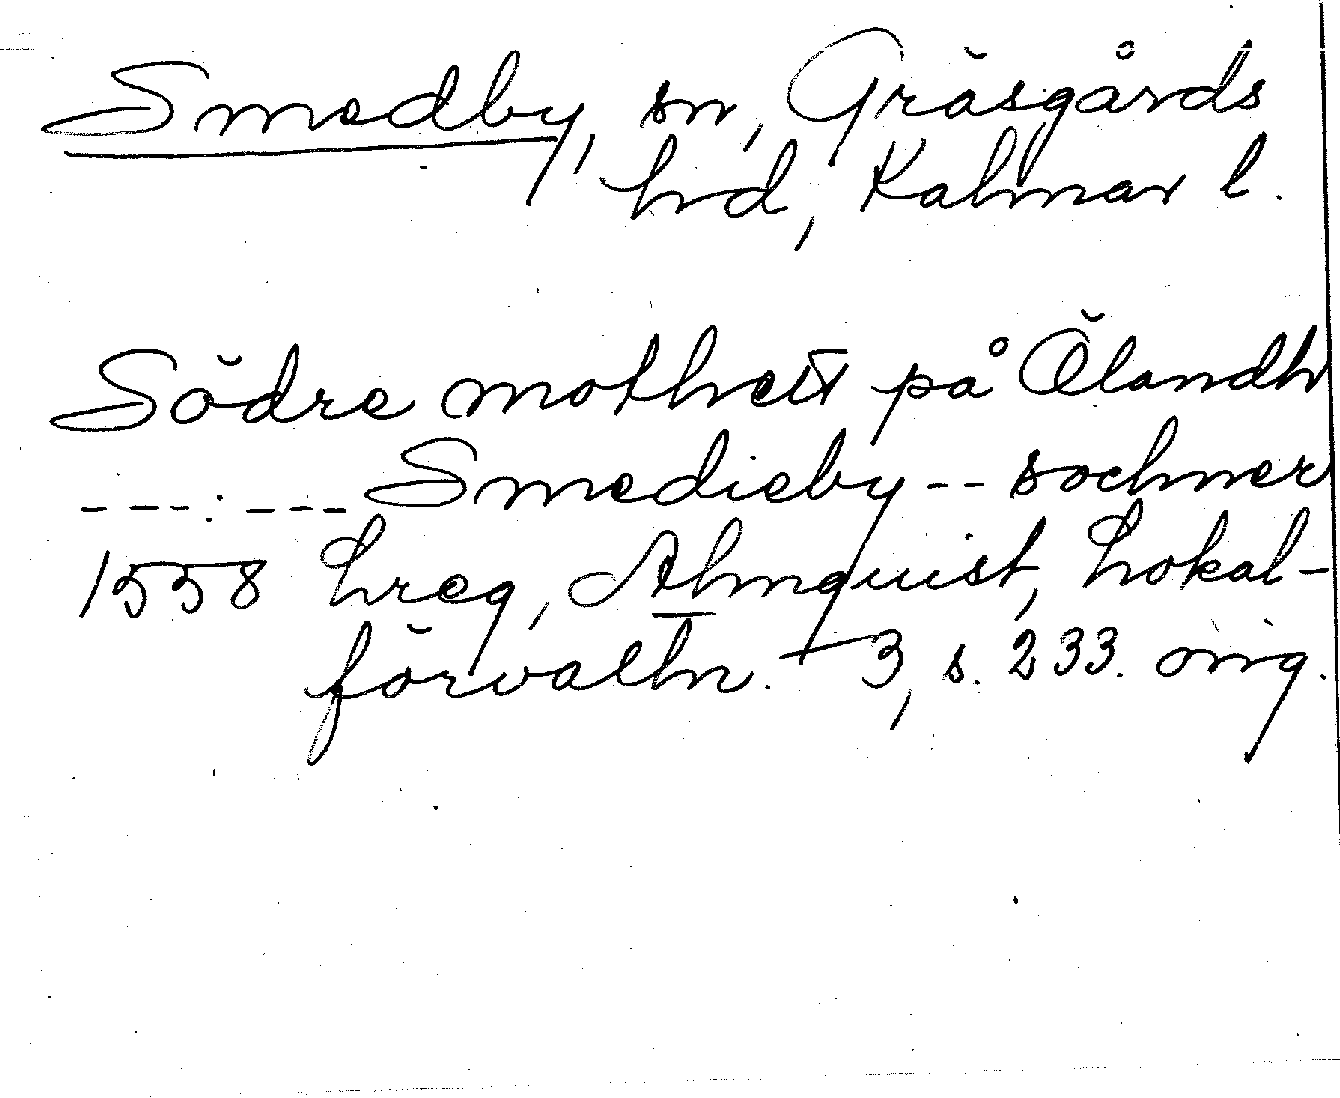 Smedby, sn, Gräsgårds
hd, Kalmar l.
Södre mothett på Ölandh
---. ---- Smedieby -- sochner
1558 hreg, Almquist, Lokal-
förvaltn. 3, s. 233. orig.